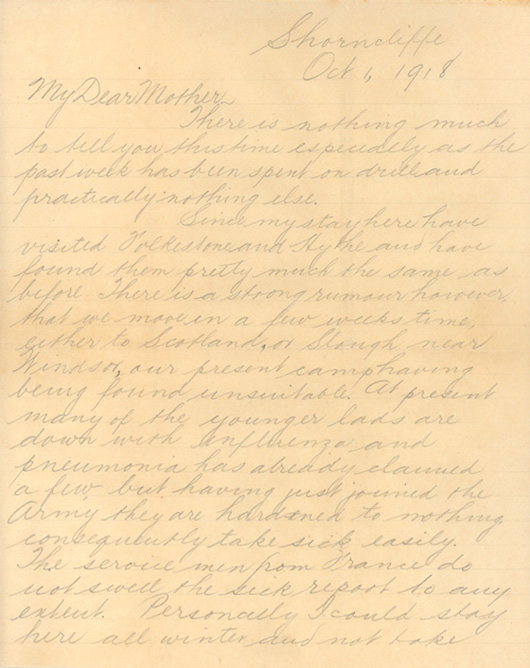 Shorncliffe
Oct 1, 1918
My Dear Mother
There is nothing much
to tell you this time especially as the
past week has been spent on drill and
practically nothing else.
Since my stay here have
visited Folkestone and Hythe and have
found them pretty much the same as
before. There is a strong rumour however,
that we move in a few weeks time,
either to Scotland, or Slough near
Windsor, our present camp having
being found unsuitable. At present
many of the younger lads are
down with influenza and
pneumonia has already claimed
a few but having just joined the
Army they are hardened to nothing
consequently take sick easily.
The service men from France do
not swell the sick report to any
extent. Personally I could stay
here all winter and not take